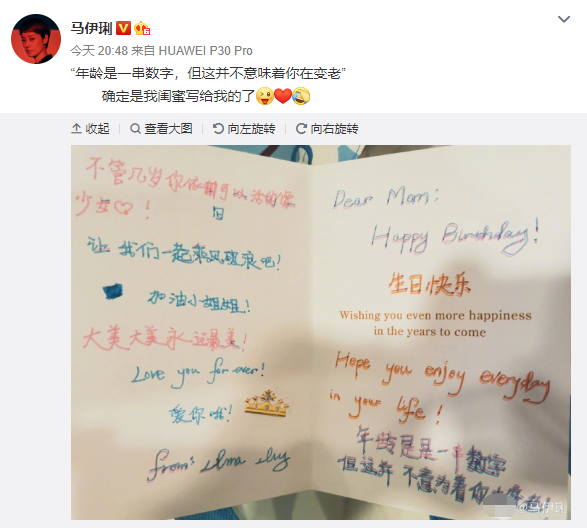 马伊琍
今天 20:48 来自 HUAWEI P30 Pro
“年龄是一串数字，但这并不意味着你在变老”
确定是我闺蜜写给我的了
收起 查看大图 向左旋转 向右旋转
不管几岁你依旧可以活的像
少女！
旧
让我们一起乘风破浪吧！
加油小姐姐！
大美大美永远最美！
Love you for ever!
爱你哦！
from:
Dear Mom:
Happy Birthday!
生日快乐
Wishing you even more happiness
in the years to come
Hope you enjoy everyday
in your life!
年龄是是一串数字
但这并不意为着你
@马伊琍